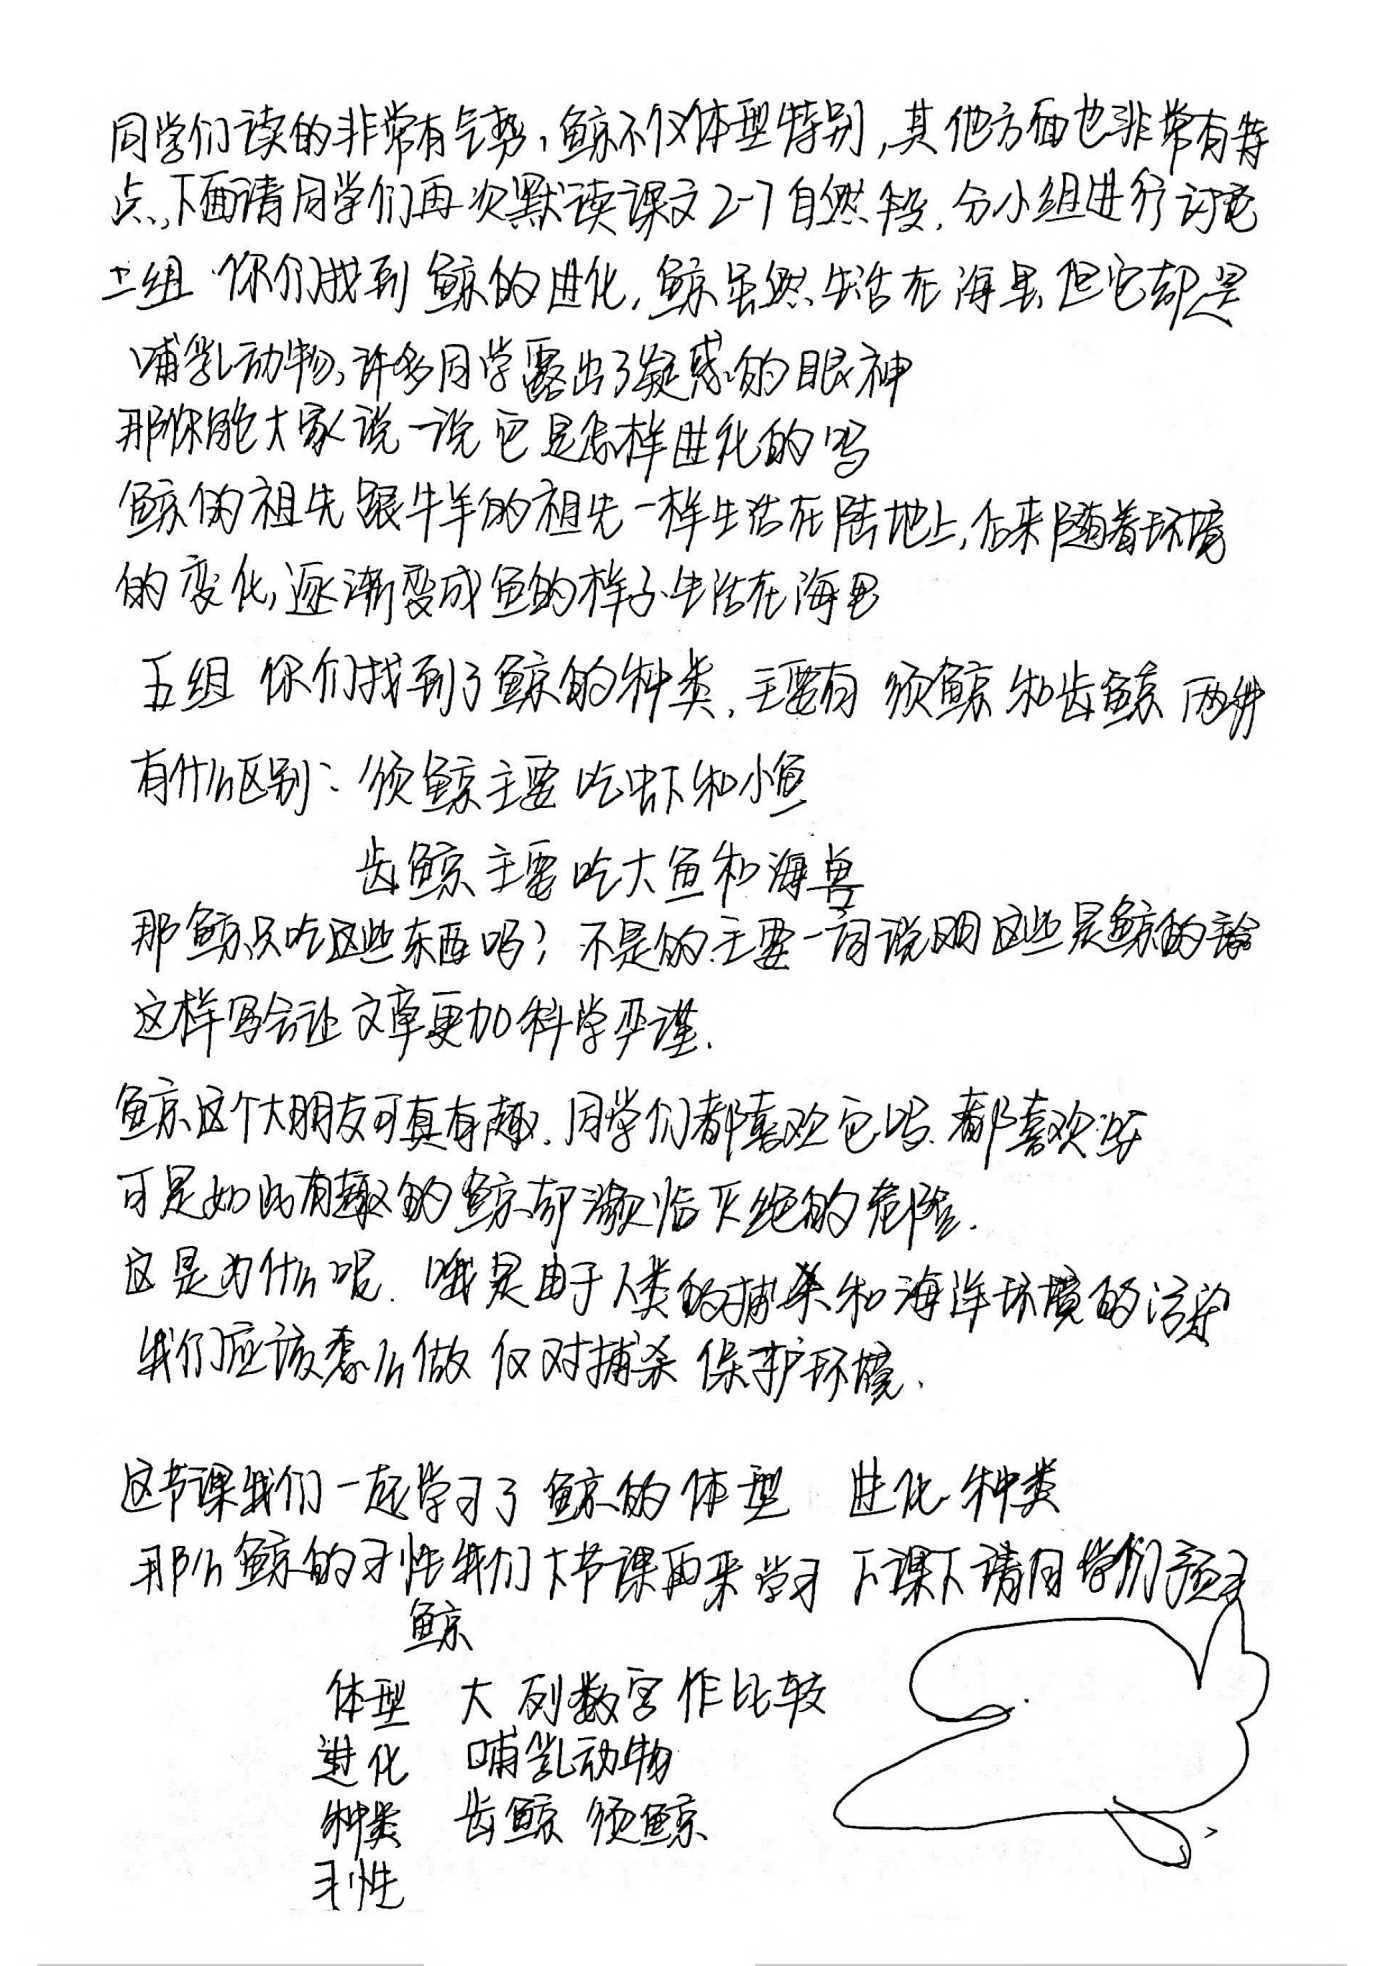 同学们读的非常有气势,鲸不仅体型特别,其他方面也非常有特
点,下面请同学们再次默读课文2-7自然段,分小组进行讨论
二组 你们找到鲸的进化,鲸虽然生活在海里但它却是
哺乳动物,许多同学露出了疑惑的眼神
那你能大家说一说它是怎样进化的吗
鲸的祖先跟牛羊的祖先一样生活在陆地上,后来随着环境
的变化,逐渐变成鱼的样子生活在海里
五组 你们找到了鲸的种类,主要有 须鲸和齿鲸 两种
有什么区别: 须鲸主要吃虾和小鱼
齿鲸主要吃大鱼和海兽
那鲸只吃这些东西吗? 不是的.主要一词说明这些是鲸的
这样写会让文章更加科学严谨.
鲸这个大朋友可真有趣.同学们都喜欢它吗.都喜欢
可是如此有趣的鲸却濒临灭绝的危险.
这是为什么呢. 哦是由于人类的捕杀和海洋环境的污染
我们应该怎么做 反对捕杀 保护环境.
这节课我们一起学习了鲸的体型 进化 种类
那么鲸的习性我们下节课再来学习 下课下请同学们预习
鲸
体型 大 列数字 作比较
进化 哺乳动物
种类 齿鲸 须鲸
习性